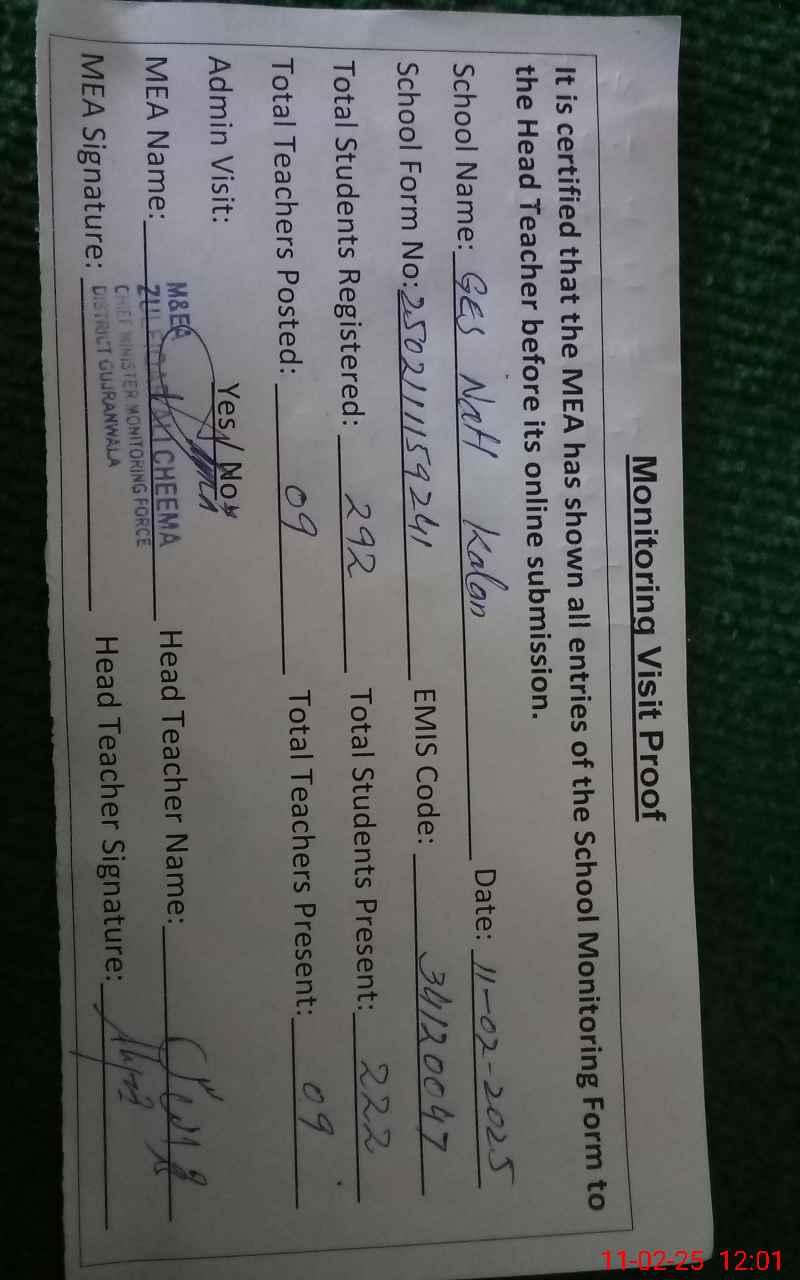 Monitoring Visit Proof
It is certified that the MEA has shown all entries of the School Monitoring Form to
the Head Teacher before its online submission.
School Name: GES Natt Kalan Date: 11-02-2025
School Form No: 2502111159241 EMIS Code: 34120047
Total Students Registered: 292 Total Students Present: 222
Total Teachers Posted: 09 Total Teachers Present: 09
Admin Visit: Yes / No
MEA Name: Head Teacher Name:
MEA Signature: Head Teacher Signature:
M&EA
CHEEMA
CHIEF MINISTER MONITORING FORCE
DISTRICT GUJRANWALA
11-02-25 12:01